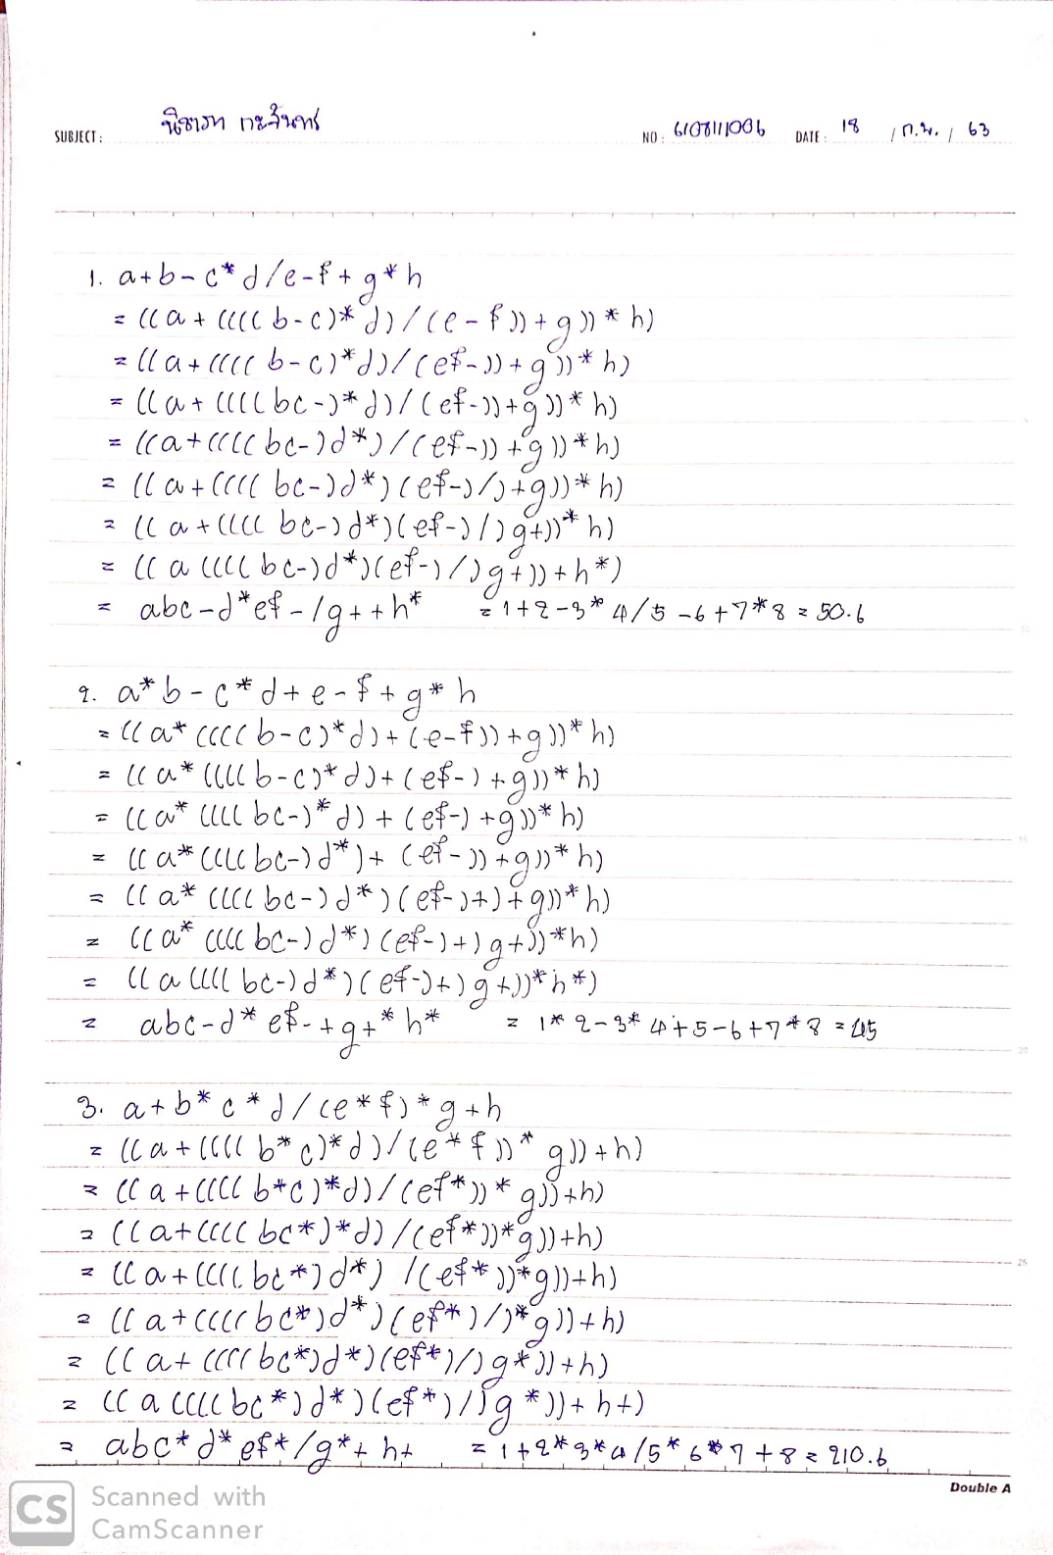 SUBJECT: NO: 6108111006 DATE: 18 / ก.พ. / 63
1. a+b-c*d/e-f+g*h
= ((a+((((b-c)*d)/(e-f))+g))*h)
= ((a+((((b-c)*d)/(ef-))+g))*h)
= ((a+((((bc-)*d)/(ef-))+g))*h)
= ((a+((((bc-)d*)/(ef-))+g))*h)
= ((a+((((bc-)d*)(ef-)/)+g))*h)
= ((a+((((bc-)d*)(ef-)/)g+))*h)
= ((a((((bc-)d*)(ef-)/)g+))+h*)
= abc-d*ef-/g++h* = 1+2-3*4/5-6+7*8 = 50.6
2. a*b-c*d+e-f+g*h
= ((a*((((b-c)*d)+(e-f))+g))*h)
= ((a*((((b-c)*d)+(ef-)+g))*h)
= ((a*((((bc-)*d)+(ef-)+g))*h)
= ((a*((((bc-)d*)+(ef-))+g))*h)
= ((a*((((bc-)d*)(ef-)+)+g))*h)
= ((a*((((bc-)d*)(ef-)+)g+))*h)
= ((a((((bc-)d*)(ef-)+)g+))*h*)
= abc-d*ef-+g+*h* = 1*2-3*4+5-6+7*8 = 45
3. a+b*c*d/(e*f)*g+h
= ((a+((((b*c)*d)/(e*f))*g))+h)
= ((a+((((b*c)*d)/(ef*))*g))+h)
= ((a+((((bc*)*d)/(ef*))*g))+h)
= ((a+((((bc*)d*)/(ef*))*g))+h)
= ((a+((((bc*)d*)(ef*)/)*g))+h)
= ((a+((((bc*)d*)(ef*)/)g*))+h)
= ((a((((bc*)d*)(ef*)/)g*))+h+)
= abc*d*ef*/g*+h+ = 1+2*3*4/5*6*7+8 = 210.6
Double A
CS Scanned with
CamScanner